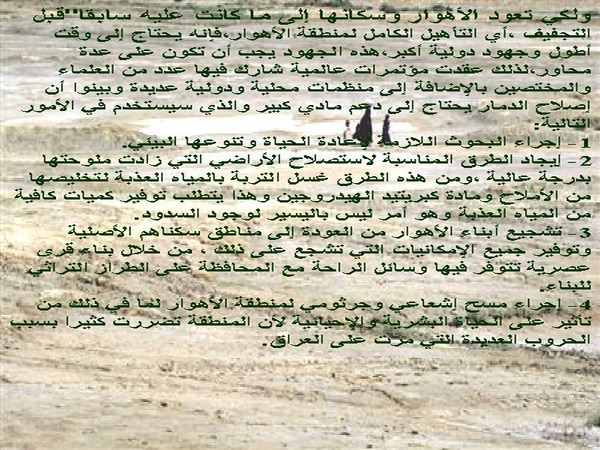 ولكي تعود الأهوار وسكانها إلى ما كانت عليه سابقا""قبل
التجفيف ،أي التأهيل الكامل لمنطقة الأهوار،فإنه يحتاج إلى وقت
أطول وجهود دولية أكبر،هذه الجهود يجب أن تكون على عدة
محاور،لذلك عقدت مؤتمرات عالمية شارك فيها عدد من العلماء
والمختصين بالإضافة إلى منظمات محلية ودولية عديدة وبينوا أن
إصلاح الدمار يحتاج إلى دعم مادي كبير والذي سيستخدم في الأمور
التالية:
1- إجراء البحوث اللازمة لإعادة الحياة وتنوعها البيئي.
2- إيجاد الطرق المناسبة لاستصلاح الأراضي التي زادت ملوحتها
بدرجة عالية ،ومن هذه الطرق غسل التربة بالمياه العذبة لتخليصها
من الأملاح ومادة كبريتيد الهيدروجين وهذا يتطلب توفير كميات كافية
من المياه العذبة وهو أمر ليس باليسير لوجود السدود.
3- تشجيع أبناء الأهوار من العودة إلى مناطق سكناهم الأصلية
وتوفير جميع الإمكانيات التي تشجع على ذلك ، من خلال بناء قرى
عصرية تتوفر فيها وسائل الراحة مع المحافظة على الطراز التراثي
للبناء.
4- إجراء مسح إشعاعي وجرثومي لمنطقة الأهوار لما في ذلك من
تأثير على الحياة البشرية والإحيائية لأن المنطقة تضررت كثيرا بسبب
الحروب العديدة التي مرت على العراق.